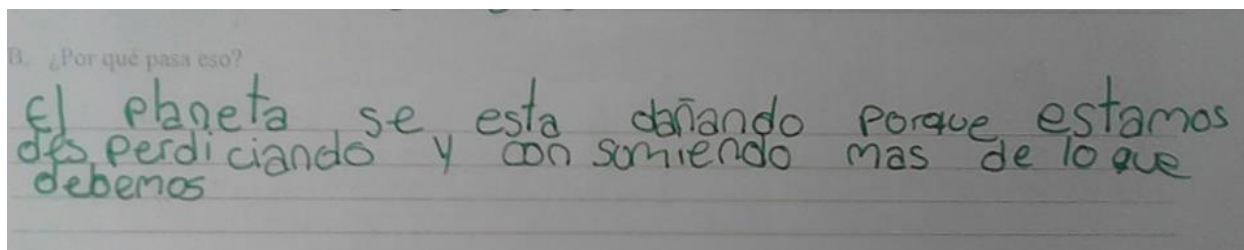 B. ¿Por qué pasa eso?
El planeta se esta dañando porque estamos
des perdiciando y con somiendo mas de lo que
debemos